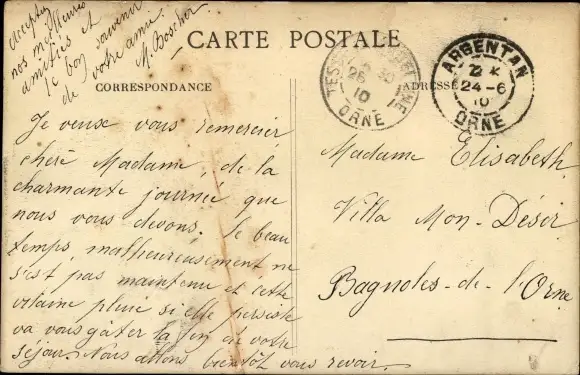 acceptez
nos meilleures
amitiés et
le bon souvenir
de votre amie.
M. Boscher.
CARTE POSTALE
CORRESPONDANCE
ADRESSE
Je veux vous remercier
chère Madame, de la
charmante journée que
nous vous devons. Le beau
temps, malheureusement ne
s'est pas maintenu et cette
vilaine pluie si elle persiste
va vous gâter la fin de votre
séjour. Nous allons bientôt vous revoir.
26
10
ORNE
ARGENTAN
24-6
10
ORNE
Madame Elisabeth
Villa Mon-Désir
Bagnoles-de-l'Orne